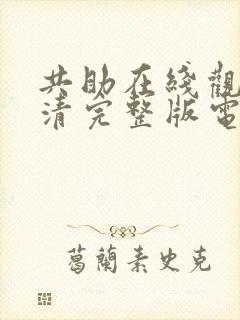 共助在綫觀
清完整版電
葛蘭素史克